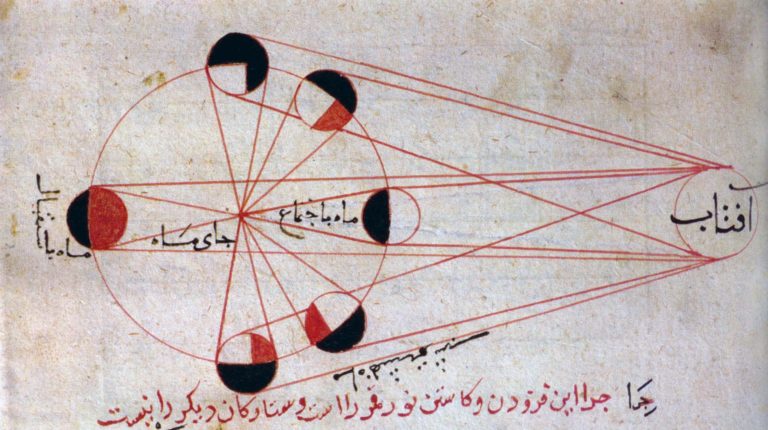 افتاب
ماه باجتماع
جای ماه
ماه باستقبال
جرا این فزودن و کاستن نور قمر را است و ستارکان دیکر را نیست